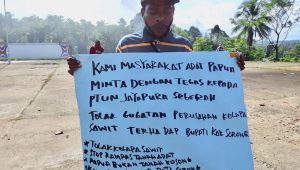 KAMI MASYARAKAT ADAT PAPUA
MINTA DENGAN TEGAS KEPADA
PTUN JAYAPURA SEGERAH
TOLAK GUGATAN PERUSAHAN KELAPA
SAWIT TERHADAP BUPATI KAB SORONG
#TOLAK KELAPA SAWIT
#STOP RAMPAS TANAH ADAT
#PAPUA BUKAN TANAH KOSONG